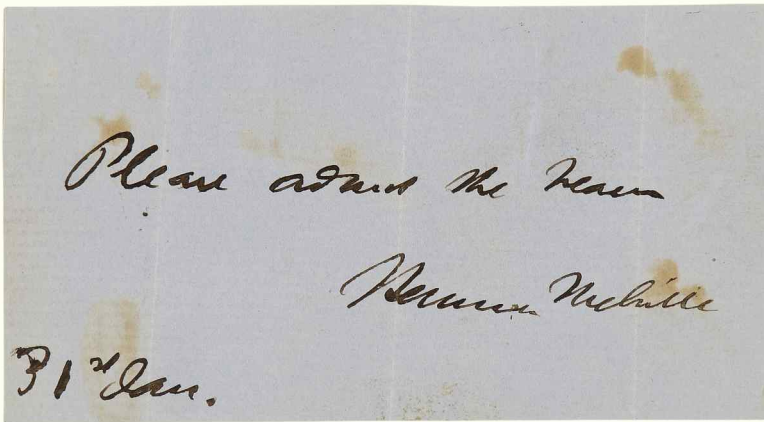 Please admit the bearer
Herman Melville
31st Jan.